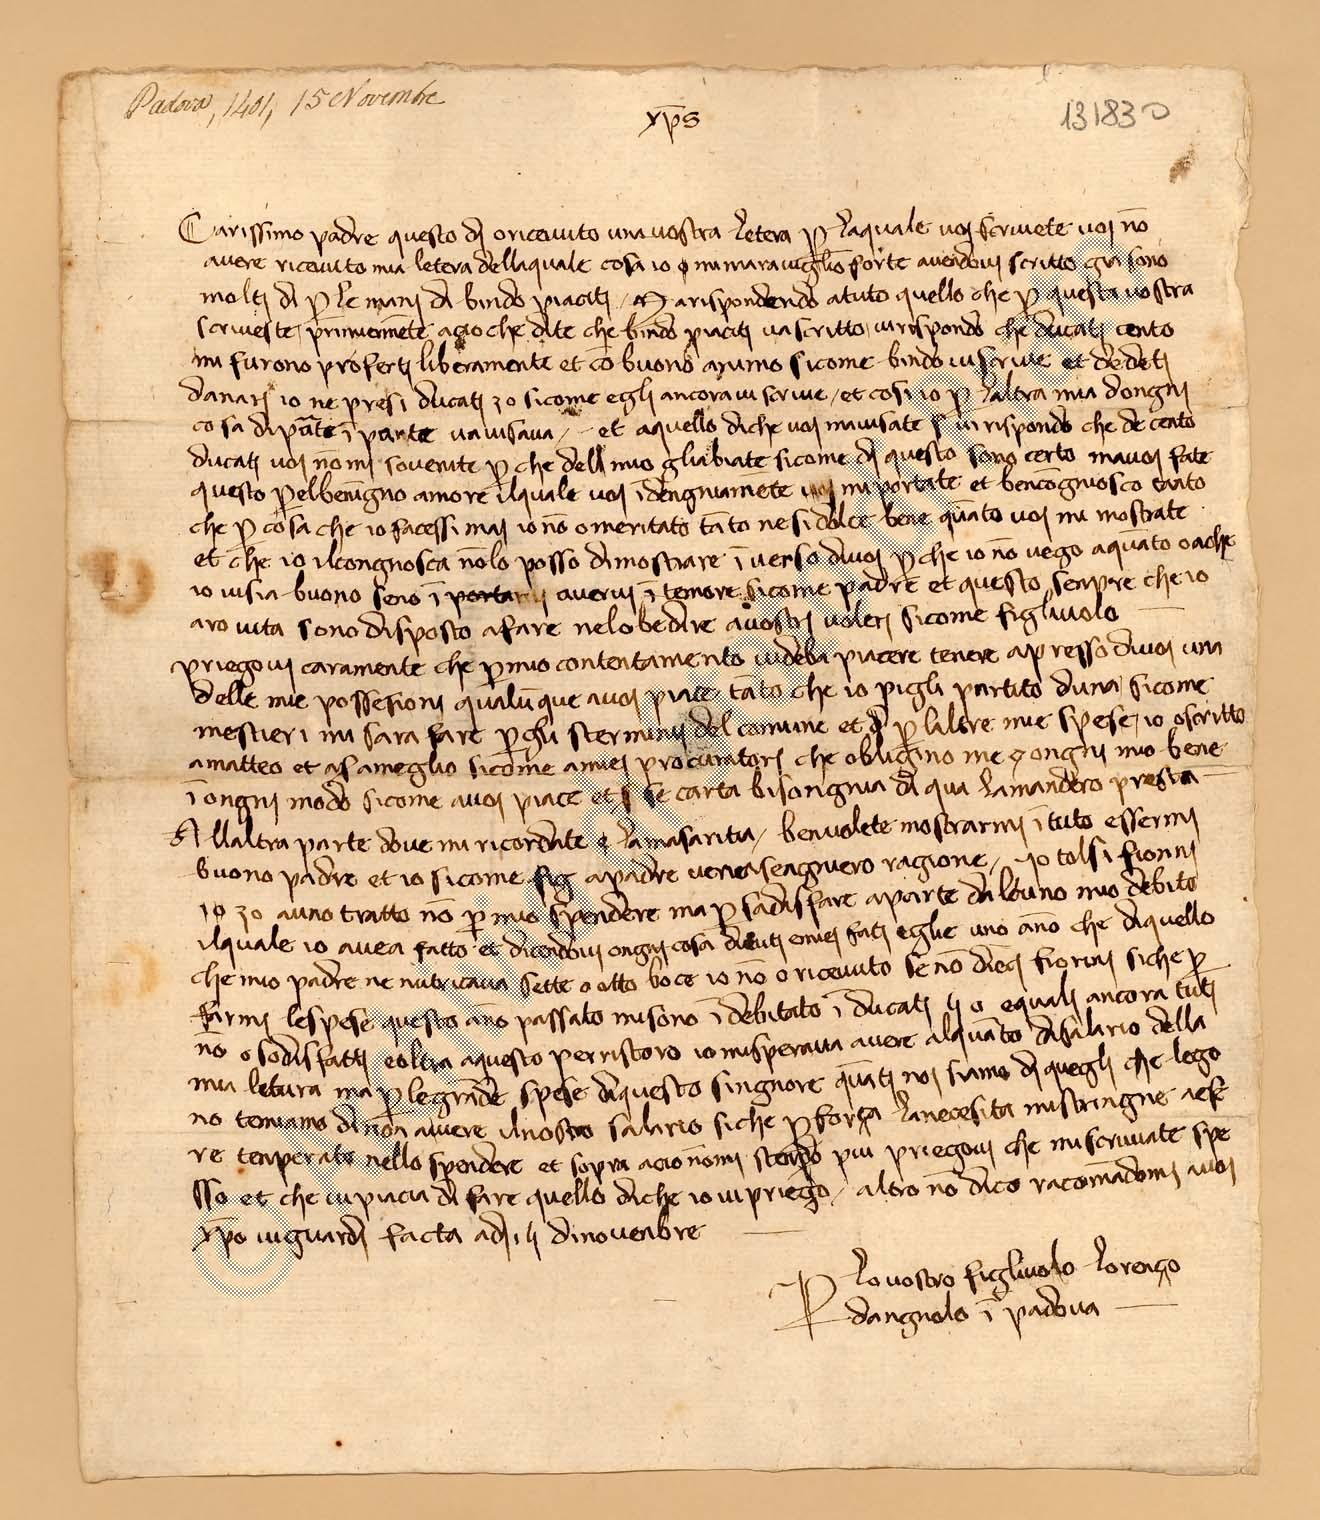 Padova, 1401, 15 Novembre
131830
yp̄s
Carissimo padre questo dj o ricevuto una vostra letera p laquale voj scrivete voj nō
avere ricevuto mia letera dellaquale cosa io mi maraviglio forte avendovi scritto gia sono
moltj dj p le manj dj bindo piacitj / arispondendo atuto quello che p questa vostra
scriveste / primieramēte acio che dite che bindo piacitj va scritto virispondo che ducatj cento
mi furono profertj liberamente et cō buono animo sicome bindo vi scrive et dedetj
danarj io ne presi ducatj 30 sicome eglj ancora vi scrive / et cosi io p laltra mia dongnj
cosa dj pāte ī parte vavisava / et aquello dj che voj mavisate vi rispondo che de cēto
ducatj voj nō mj sovenite p che dell mio gliabiate sicome dj questo sono certo mavoj fate
questo p elbenigno amore ilquale voj īdengniamēte voj mi portate et bencōgniosco tāto
che p cosa che io facessi maj io nō o meritato tāto ne si dolce bene quāto voj mi mostrate
et che io il congnosca nō lo posso dimostrare īverso divoj p che io nō vego aquāto o ache
io vi sia buono seno ī avervi ī temore sicome padre et questo senpre che io
aro vita sono disposto afare nelobedire avostrj volerj sicome figlivolo
priegovi caramente che p mio contentamento vi deba piacere tenere apresso divoj una
delle mie possesioni qualūque avoj piace tāto che io piglj partito duna sicome
mestieri mi sara fare p glj sterminij del comune et p laltre mie spese, io o scritto
amatteo et asameglio sicome amiej procuratorj che obligino me ongnj mio bene
ī ongnj modo sicome avoj piace et se carta bisongnia dj qua lamandero presta
Allaltra parte dove mi ricordate lamasaritia / benvolete mostrarmj ī tuto essermj
buono padre et io sicome fig apadre verrasegniero ragione / Io tolsi fiorinj
30 auno tratto nō p mio spendere ma p sadisfare aparte dalcuno mio debito
ilquale io avea fatto et dicendovi ongnj cosa eglie uno āno che djquello
che mio padre ne nutricava sette o otto boce io nō o ricevuto se nō diecj fiorinj siche p
farmj lespese questo āno passato misono īdebitato ī ducatj lj o equalj ancora tutj
nō o sodisfattj eoltra aquesto perristoro io misperava avere alquāto disalario della
mia letura ma p legrāde spese djquesto singnore quātj noj siamo dj queglj che lego
no temiamo dj nō avere ilnostro salario siche p força lanecesita mistringne aeser
re tenperato nello spendere et sopra acio nōmj stendo piu priegovi che miscriviate spe
sso et che vi piacia dj fare quello dj che io vi priego / altro nō dico racomādomj avoj
yp̄o viguardj facta adj 15 di novenbre
P lovostro figlivolo Lorenço
dangnolo ī padova